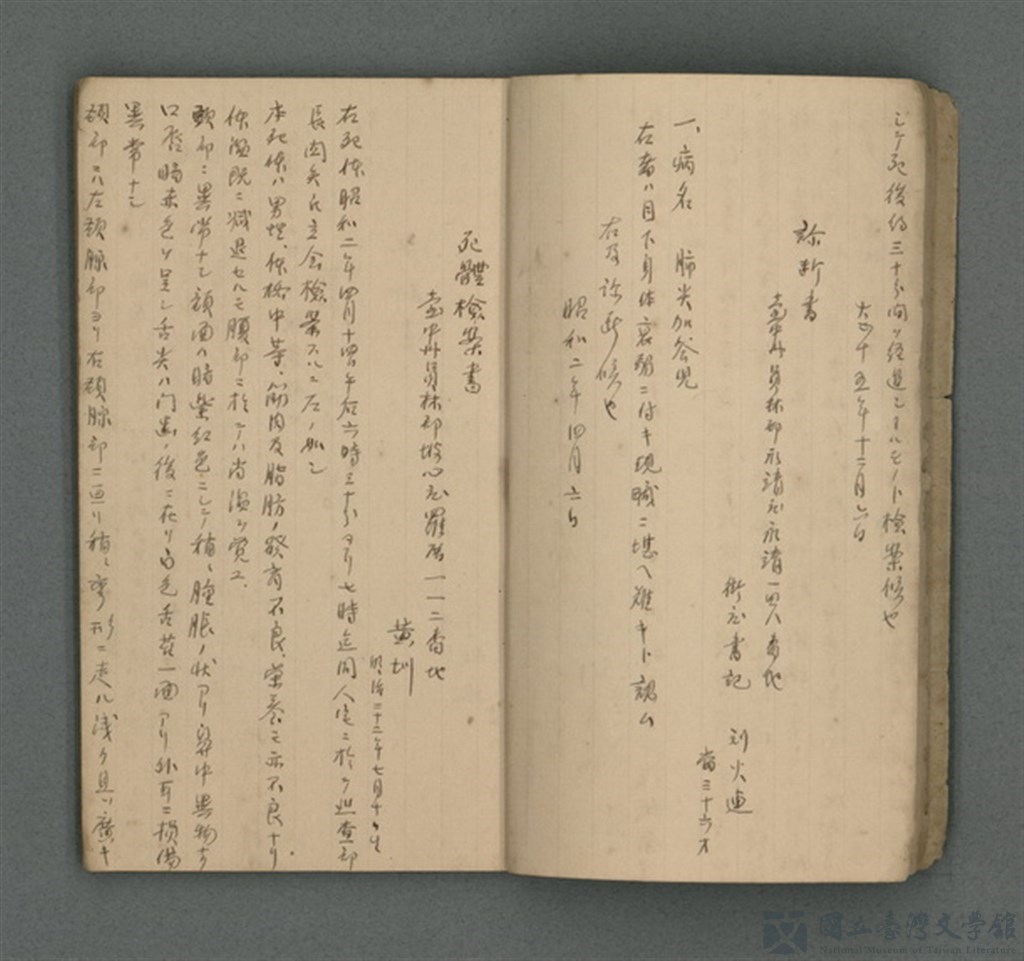 シテ死後約三十分間ヲ経過シタルモノト検案候也
大正十五年十二月六日
診断書
臺中州員林郡永靖庄永靖一四八番地
街庄書記 刘火連
當三十六才
一、病名 肺尖加答児
右者ハ目下身体衰弱ニ付キ現職ニ堪ヘ難キト認ム
右及診断候也
昭和二年四月六日
死體檢案書
臺中州員林郡坡心庄羅厝一一二番地
黄圳
明治三十二年七月十日生
右死体昭和二年四月十四日午后六時三十分ヨリ七時迄同人宅ニ於ケ巡查部
長立会検案スルニ左ノ如シ
本死体ハ男性、体格中等、筋肉及脂肪ノ発育不良、栄養モ亦不良ナリ
体温既ニ減退セルモ腹部ニ於テハ尚温ヲ覚ユ、
頭部ニ異常ナシ顔面ハ暗紫紅色ニシテ稍々腫脹ノ状アリ鼻中異物ナ
口唇暗赤色ヲ呈シ舌尖ハ门歯ノ後ニ在リ白色舌苔一面アリ外耳ニ損傷
異常ナシ
頚部ニハ左頚腺部ヨリ右頚腺部ニ亘リ稍々弯形ニ走ル浅ク且ツ廣キ
國立臺灣文學館
National Museum of Taiwan Literature